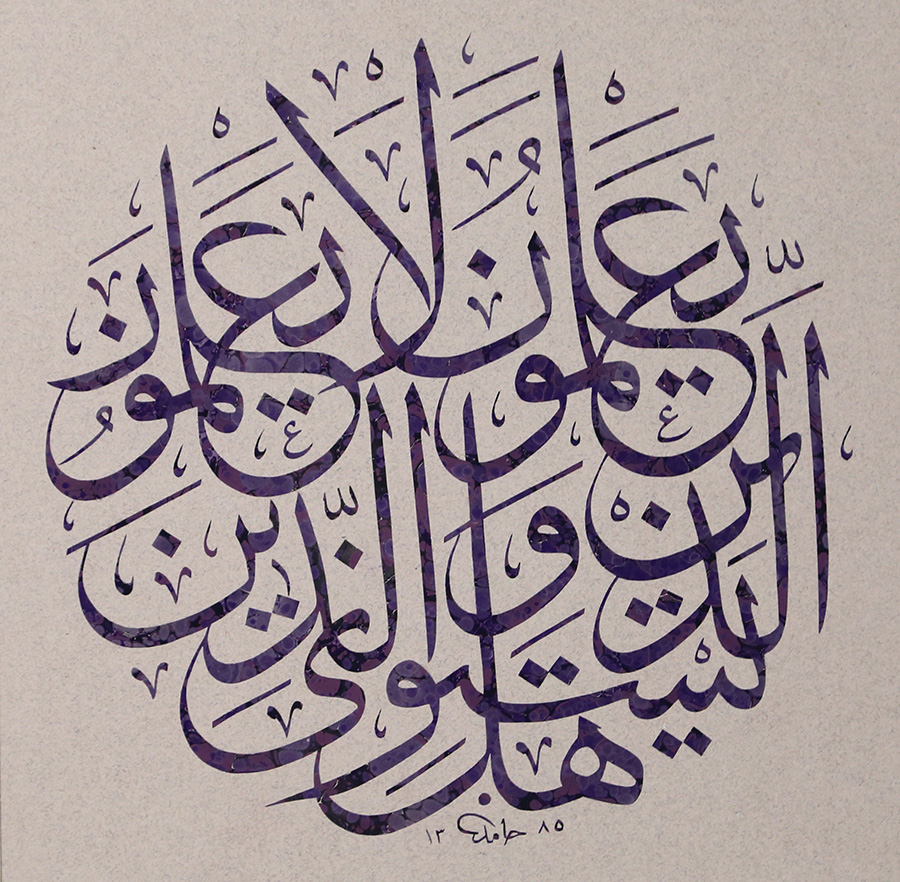 هَلْ يَسْتَوِي الَّذِينَ يَعْلَمُونَ وَالَّذِينَ لَا يَعْلَمُونَ
حامد ١٣٨٥